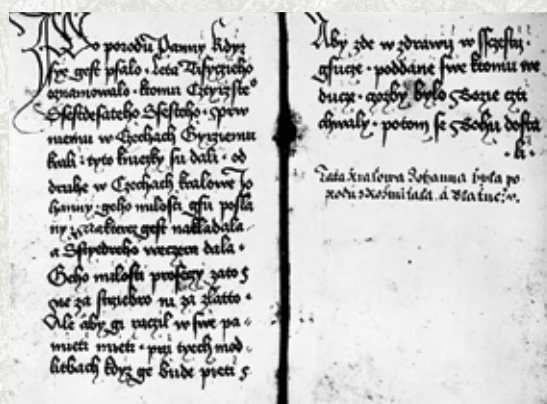 Po porodu Panny kdyz
sye gest psalo · leta Tisyczieho
oznamowalo · ktomu Cztyrzsté°
Ssestdesateho Ssesteho · prw
niemu w Czechach Gyrziemu
krali · tyto kniezky su dali · od
druhe w Czechach kralowe Jo
hanny · geho milosti gsu posla
ny · gest nakladala
a Sstyedreho weczera dala ·
Geho milosti prosyczy zato
ne za striebro ni za zlatto ·
Ale aby gi raczil w swe pa
mieti mieti · pri tyech mod
litbach kdyz ge bude pieti
Aby zde w zdrawij w sscziestij
gsucze · poddane swe ktomu we
ducze · czozby bylo Bozie czti
chwaly · potom se Bohu dosta
li ·
Tato kralowa Johanna byla po
rodu z Rozmitala a Blatne: